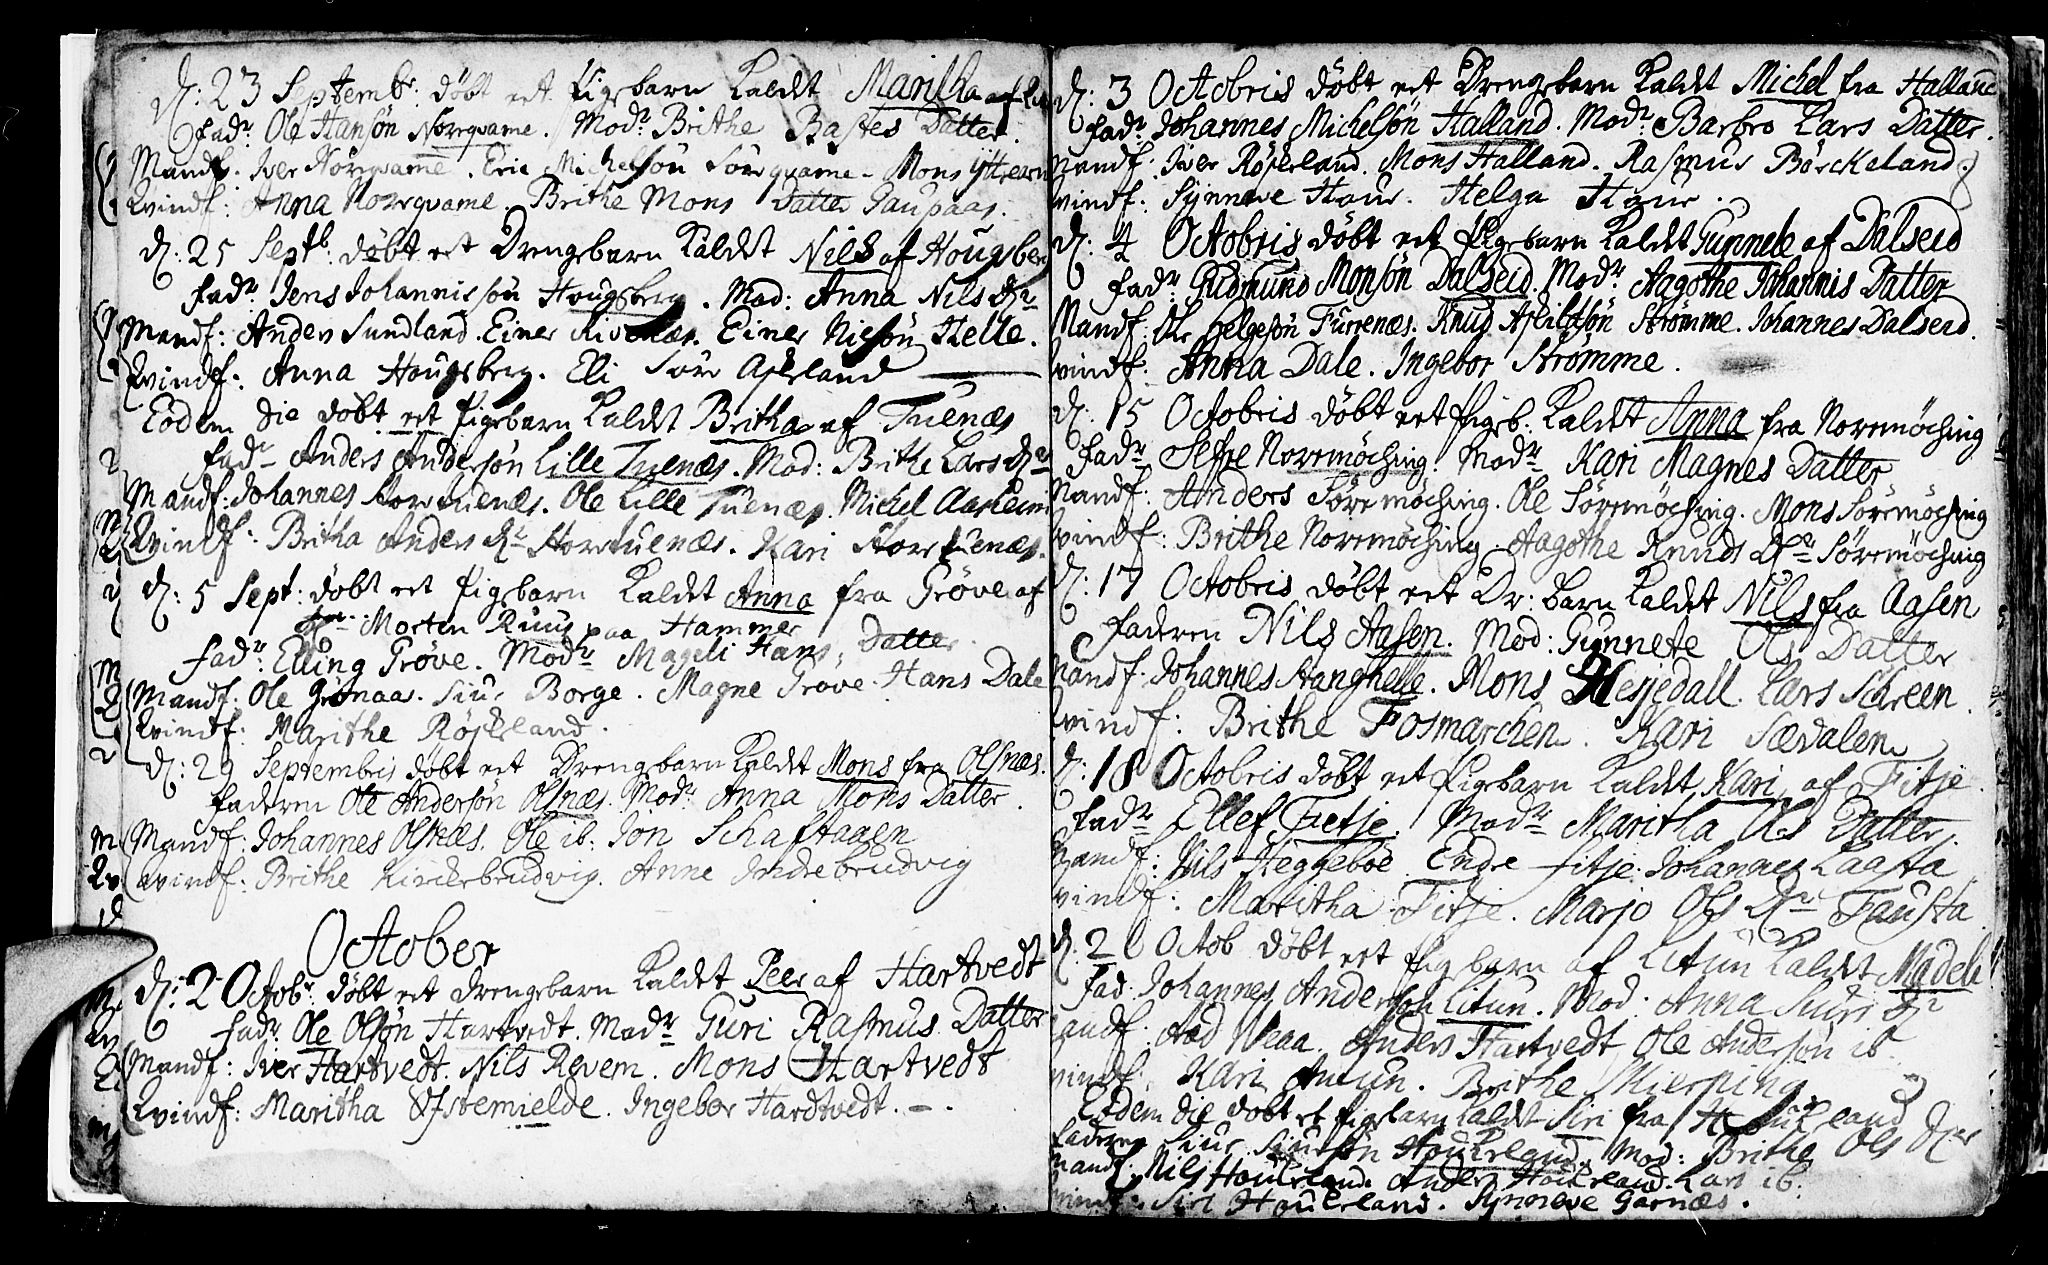 D: 23 Septembr: döbt eet Pigebarn kaldt Maritha af
Fadr: Ole Hansön Norrqvame. Modr: Brithe Bastes Datter.
Mandf: Iver Norrqvame. Eric Michelsön Sörqvame. Mons
Qvindf: Anna Norrqvame. Brithe Mons Datter Gaupaas.
D: 25 Septb: döbt eet Drengebarn kaldet Nils af Hougsberg
Fadr: Jens Johannissön Hougsberg. Mod: Anna Nils Dr
Mandf: Anders Sundland. Einer Rivenæs. Einer Nilsön Helle.
Qvindf: Anna Hougsberg. Eli Söre Askeland
Eodem die döbt eet Pigebarn kaldet Britha af Tuenæs
Fadr Anders Andersön Lille Tuenæs. Mod: Brithe Lars Dr
Mandf: Johannes Storetuenæs. Ole Lille Tuenæs. Michel Aasheim
Qvindf: Britha Anders Dr Storetuenæs. Kari Storetuenæs.
D: 5 Sept: döbt eet Pigebarn kaldet Anna fra Gröve af
Morten Ruus paa Hammer
Fadr: Elling Gröve. Modr Mageli Hans Datter
Mandf: Ole Grönaas. Siur Borge. Magne Gröve. Hans Dale
Qvindf: Marithe Röskeland.
D: 29 Septembris döbt eet Drengebarn kaldet Mons fra Olsnæs.
Faderen Ole Andersön Olsnæs. Modr: Anna Mons Datter.
Mandf: Johannes Olsnæs. Ole ib: Jon Schaftaaen
Qvindf: Brithe Kirckebrudvig. Anne Indrebrudvig
October
D: 2 Octobr: döbt eet Drengebarn kaldet Peer af Hartvedt
Fadr Ole Olsön Hartvedt. Modr Guri Rasmus Datter
Mandf: Iver Hartvedt. Nils Revem. Mons Hartvedt
Qvindf: Maritha Ostemielde. Ingebor Hardtvedt.
D: 3 Octobris döbt eet Drengebarn kaldt Michel fra Halland
Fadr Johannes Michelsön Halland. Modr Barbro Lars Datter.
Mandf: Iver Röskeland. Mons Halland. Rasmus Börckeland.
Qvindf: Synneve Houe. Helga Houe.
D: 4 Octobris döbt eet Pigebarn kaldet Gunnele af Dalseid
Fadr: Gudmund Monsön Dalseid. Modr Aagothe Johannis Datter
Mandf: Ole Helgesön Furrenæs. Knud Askildsön Strömme. Johannes Dalseid.
Qvindf: Anna Dale. Ingebor Strömme.
D: 15 Octobris döbt eet Pigeb. kaldet Anna fra Norremöching
Fadr Norremöching. Modr Kari Magnes Datter
Mandf: Anders Söremöching. Ole Söremöching. Mons Söremöching
Qvindf: Brithe Norremöching. Aagothe Knuds Dr Söremöching
D: 17 Octobris döbt eet Dr: barn kaldet Nils fra Aasen
Faderen Nils Aasen. Mod: Gunnete Ols Datter
Mandf: Johannes Stanghelle. Mons Hesjedall. Lars Schreen
Qvindf: Brithe Fosmarchen. Kari Sædalen
D: 18 Octobris döbt eet Pigebarn kaldet Kari af Fitje
Fadr Ellef Fietje. Modr Maritha Ols Datter
Mandf: Nils Heggeboe Endre Fitje. Johannes
Qvindf: Maritha Fitje. Marjo Ols Dr Fausta
D. 21 Octob döbt eet Pigebarn af Litun kaldet Madele
Fad: Johannes Andersön Litun. Mod: Anna Siurs Dr
Mandf: Aad Veaa. Anders Hartvedt. Ole Andersön ib
Qvindf: Kari Brithe Skierping
Eodem die döbt et Pigebarn kaldt Siri fra Houkeland
Faderen Siur Siursön Houkeland. Mod: Brithe Ols Dr
Mandf: Nils Houkeland. Anders Houkeland. Lars ib:
Qvindf: Siri Houkeland. Synneve Garnæs.